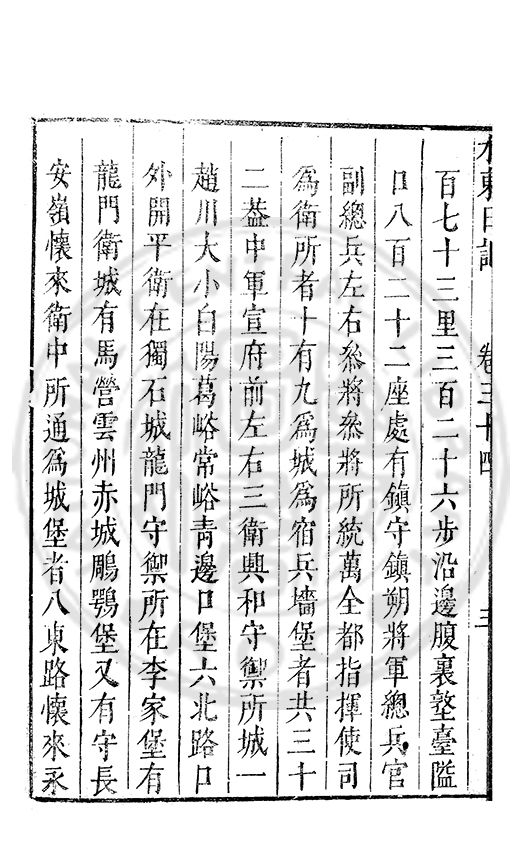 水東日記 卷三十四 三
百七十三里三百二十六步沿邊腹裏墪臺隘
口八百二十二座處有鎮守鎮朔將軍總兵官
副總兵左右叅將叅將所統萬全都指揮使司
爲衛所者十有九爲城爲宿兵墻堡者共三十
二葢中軍宣府前左右三衛興和守禦所城一
趙川大小白陽葛峪常峪青邊口堡六北路口
外開平衛在獨石城龍門守禦所在李家堡有
龍門衛城有馬營雲州赤城鵰鶚堡又有守長
安嶺懷來衛中所通爲城堡者八東路懷來永